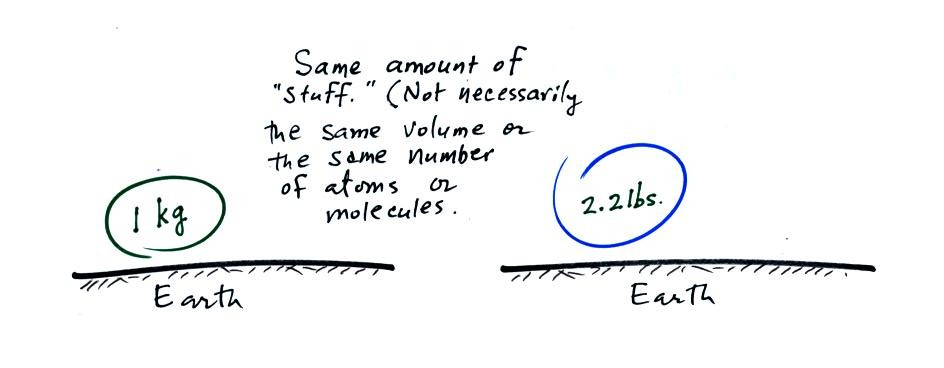 Same amount of
"stuff." (Not necessarily
the same volume or
the same number
of atoms or
molecules.
1 kg
2.2 lbs.
Earth
Earth